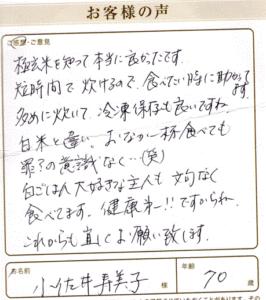 お客様の声
ご感想・ご意見
極玄米を知って本当に良かったです。
短時間で炊けるので、食べたい時に助かってます。
多めに炊いて、冷凍保存も良いですね
白米と違い、おなか一杯食べても
罪?の意識なく…(笑)
白ごはん大好きな主人も文句なく
食べてます。健康第一!!ですからね。
これからも宜しくお願い致します。
お名前 小佐井寿美子 様 年齢 70 歳